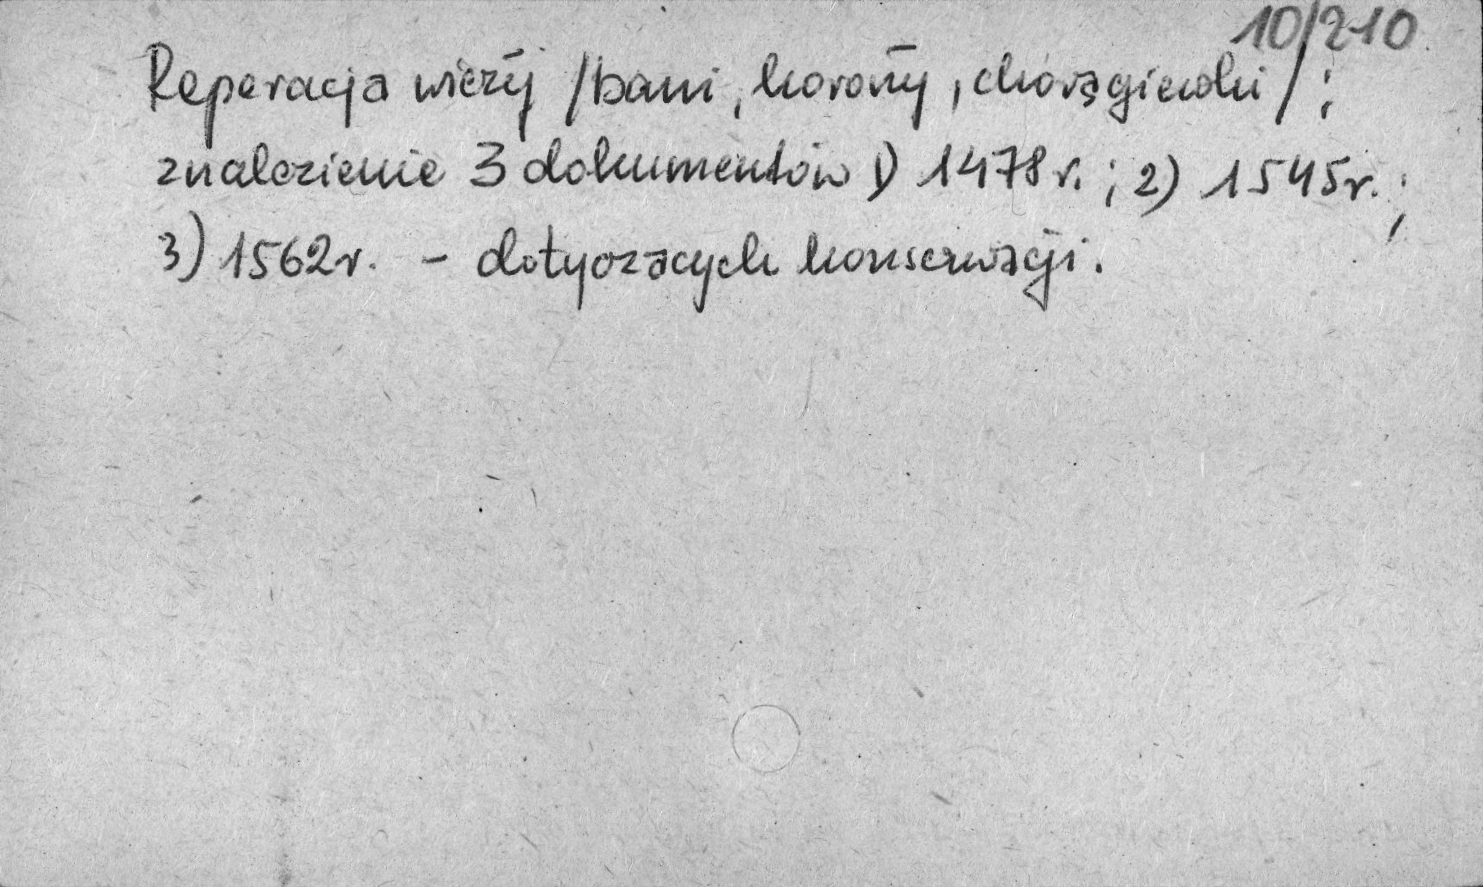 10/210
Reperacja wieży /bani, korony, chorągiewki/;
znalezienie 3 dokumentów 1) 1478 r.; 2) 1545 r.;
3) 1562 r. - dotyczących konserwacji.